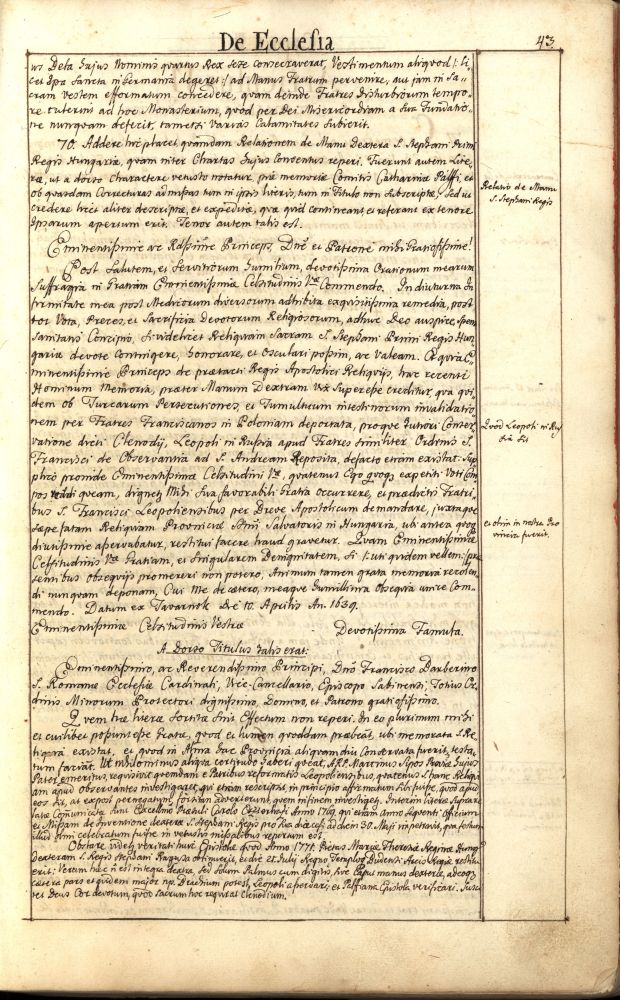 De Ecclesia
43.
us Dela hujus Nominis quartus Rex sese consecraverat, Vestimentum aliquod /: li-
cet Ipsa Sancta in Germania degeret :/ ad Manus Fratrum pervenire, aut jam in Sa-
cram Vestem efformatum concedere, quam deinde Fratres disturbiorum tempo-
re tulerint ad hoc Monasterium, quod per Dei Misericordiam a sua Fundatio-
ne nunquam deferit, tametsi varias Calamitates subierit.
70. Addere hic placet quamdam Relationem de Manu Dextera S. Stephani Primi
Regis Hungariæ, quam inter Chartas hujus Conventus reperi. Fuerunt autem Lite-
ræ, ut a dorso Charactere vetusto notatur, piæ memoriæ Comitis Catharinæ Palffi, et
ob quasdam Correcturas admissas tum in ipsis literis, tum in Titulo non subscriptæ, Sed ut
credere licet aliter descriptæ, et expeditæ, quæ quid contineant et referant ex tenore
Ipsarum apertum erit. Tenor autem talis est.
Relatio de Manu
S. Stephani Regis
Eminentissime ac Rdssime Princeps, Dne et Patrone mihi Gratiosissime!
Post Salutem, et Servitiorum humilium, devotissima Orationum mearum
Suffragia in Gratiam Eminentissimæ Celsitudinis Vræ Commendo. In diuturna In-
firmitate mea post Medicorum diversorum adhibita exquisitissima remedia, post
tot Vota, Preces, et Sacrificia Devotorum Religiosorum, adhuc Deo auspice, spem
Sanitatis Concipio, si videlicet Reliquiam Sacram S. Stephani Primi Regis Hun-
gariæ devote Contingere, honorare, et Osculari possim, ac Valeam. Et quia E-
minentissime Princeps de prætacti Regis Apostolici Reliquijs, hac recenti
Hominum Memoria, præter Manum Dextram vix superesse creditur, quæ qui-
dem ob Turcarum Persecutiones, et Tumultuum intestinorum invalidatio-
nem per Fratres Franciscanos in Poloniam deportata, proque tutiori Conser-
vatione dicti Clenodij, Leopoli in Russia apud Fratres similiter Ordinis S.
Francisci de Observantia ad S. Andream Reposita, defacto etiam existat: Sup-
Quod Leopoli in Rus-
sia sit
plico proinde Eminentissimæ Celsitudini Vræ, quatenus Ego quoque expetiti Voti Com-
pos reddi queam, dignetur Mihi Sua favorabili Gratia occurrere, et prædictis Fratri-
bus S. Francisci Leopoliensibus per Breve Apostolicum demandare, juxtaque
sæpe fatam Reliquiam Provinciæ Stmi Salvatoris in Hungaria, ubi antea quoque
diutissime asservabatur, restitui facere haud gravetur. Quam Eminentissimæ
et olim in nostra Pro-
vincia fuerit.
Celsitudinis Vræ Gratiam, et Singularem Benignitatem, si /: uti quidem vellem :/ præ-
sentibus Obsequijs promereri non potero, Animum tamen grata memoria recolen-
di nunquam deponam, Cui Me de cætero, meaque humillima Obsequia unice Com-
mendo. Datum ex Tavarnok die 10. Aprilis An. 1639.
Eminentissimæ Celsitudinis Vestræ
Devotissima Famula.
A Dorso Titulus talis erat:
Eminentissimo, ac Reverendissimo Principi, Dno Francisco Barberino
S. Romanæ Ecclesiæ Cardinali, Vice-Cancellario, Episcopo Sabinensi, Totius Or-
dinis Minorum Protectori dignissimo, Domino, et Patrono gratiosissimo.
Quem hæ literæ sortitæ sint Effectum non reperi. In eo plurimum mihi
et cuilibet possunt esse gratæ, quod et lumen quoddam præbeat, ubi memorata S. Re-
liquia existat, et quod in Alma hac Provincia aliquamdiu Conservata fuerit, testa-
tum faciat. Ut nihilominus aliqua certitudo haberi queat, A.R.P. Martinus hujus
Pater emeritus, requisivit quemdam e Patribus reformatis Leopoliensibus, quatenus S. hanc Reliqui-
am apud observantes investigaret, qui etiam rescripsit in principio affirmatum sibi fuisse, quod apud
eos sit, at exposi pernegatum, fortean adverterunt, quem in finem investiget. Interim literæ supra-
latæ Comunicatæ sunt Excellmo Præsuli Carolo Anno 1769. qui etiam Anno sequenti Officium
et Missam de Inventione dexteræ S. Stephani Regis pro sua diœcesi ad diem 30. Maji impetravit, qua festum
illud olim celebratum fuisse in vetustis missalibus repertum est.
Obstare videtur veritati huic Epistolæ quod Anno 1771. Pietas Mariæ Theresiæ Reginæ Hung.
Dexteram S. Regis Stephani Ragusa obtinuerit, et die 21. Julij Regno Templo Budensi Arcis Regiæ restitu-
erit: Verum hæc non est integra dextra, sed solum Palmus cum digitis, sive Caput manus dexteræ, adeoque
cætera pars et quidem major Leopoli asservari, et Palffiana Epistola verificari. Susci-
tet Deus Cor devotum, quod sacrum hoc requirat Clenodium.